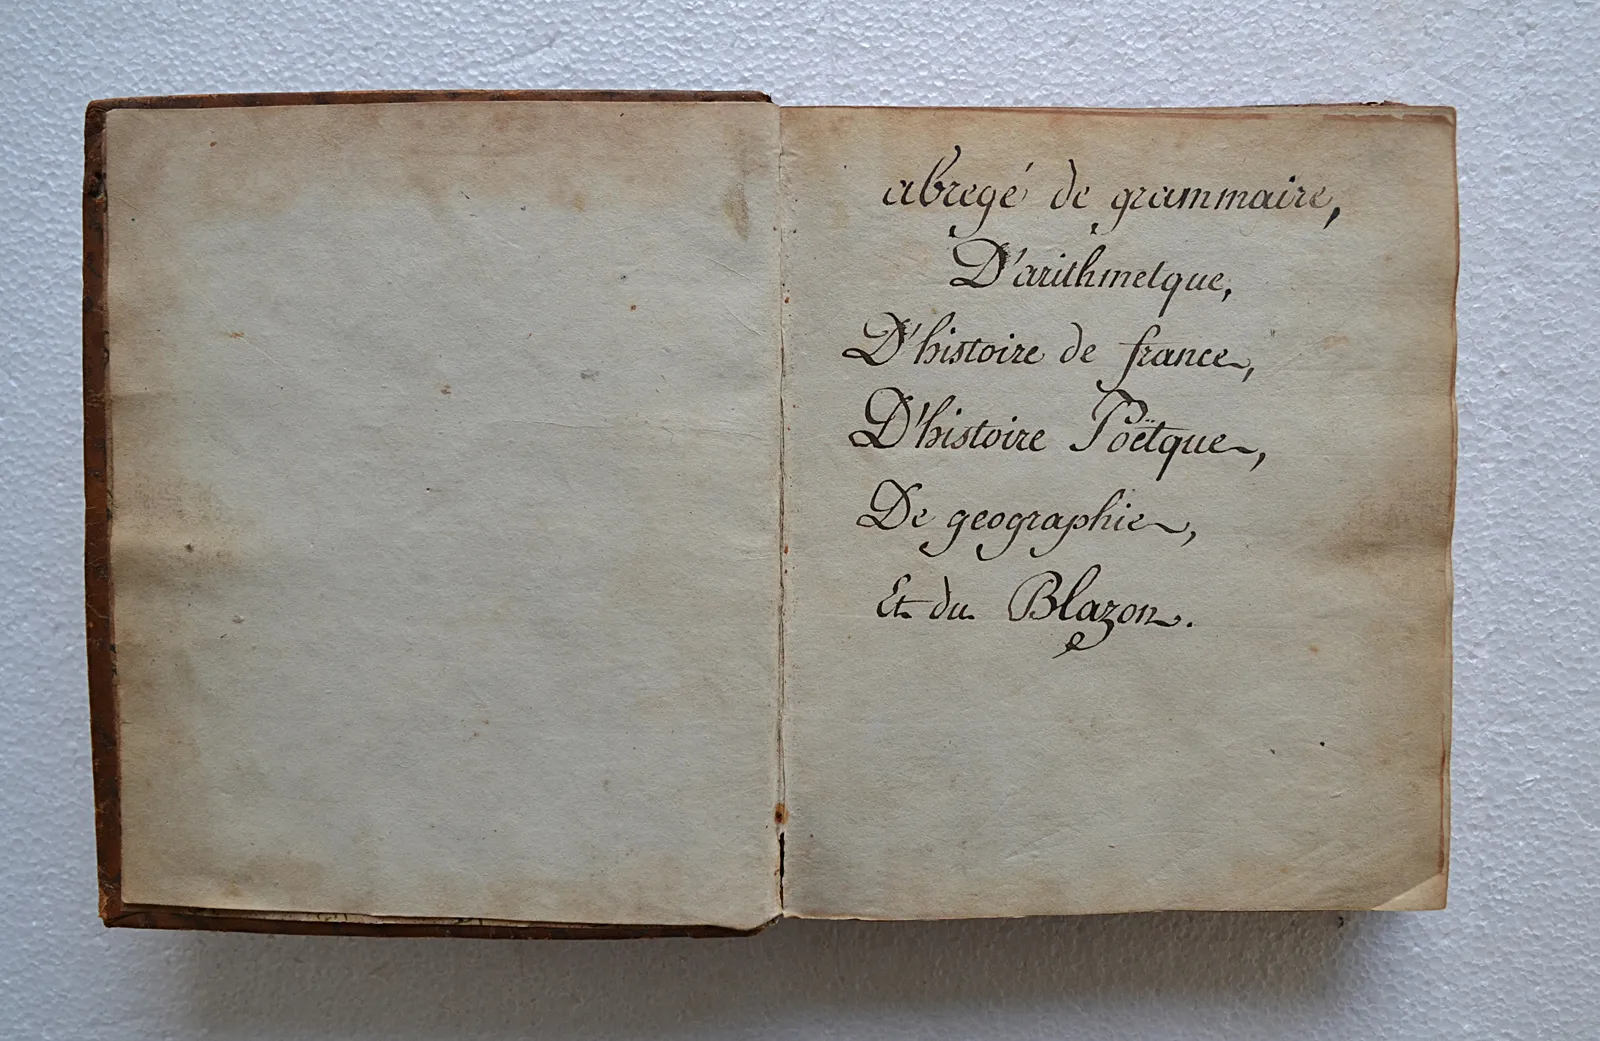 abregé de grammaire,
D'arithmetque,
D'histoire de france,
D'histoire Poëtque,
De geographie,
Et du Blazon.